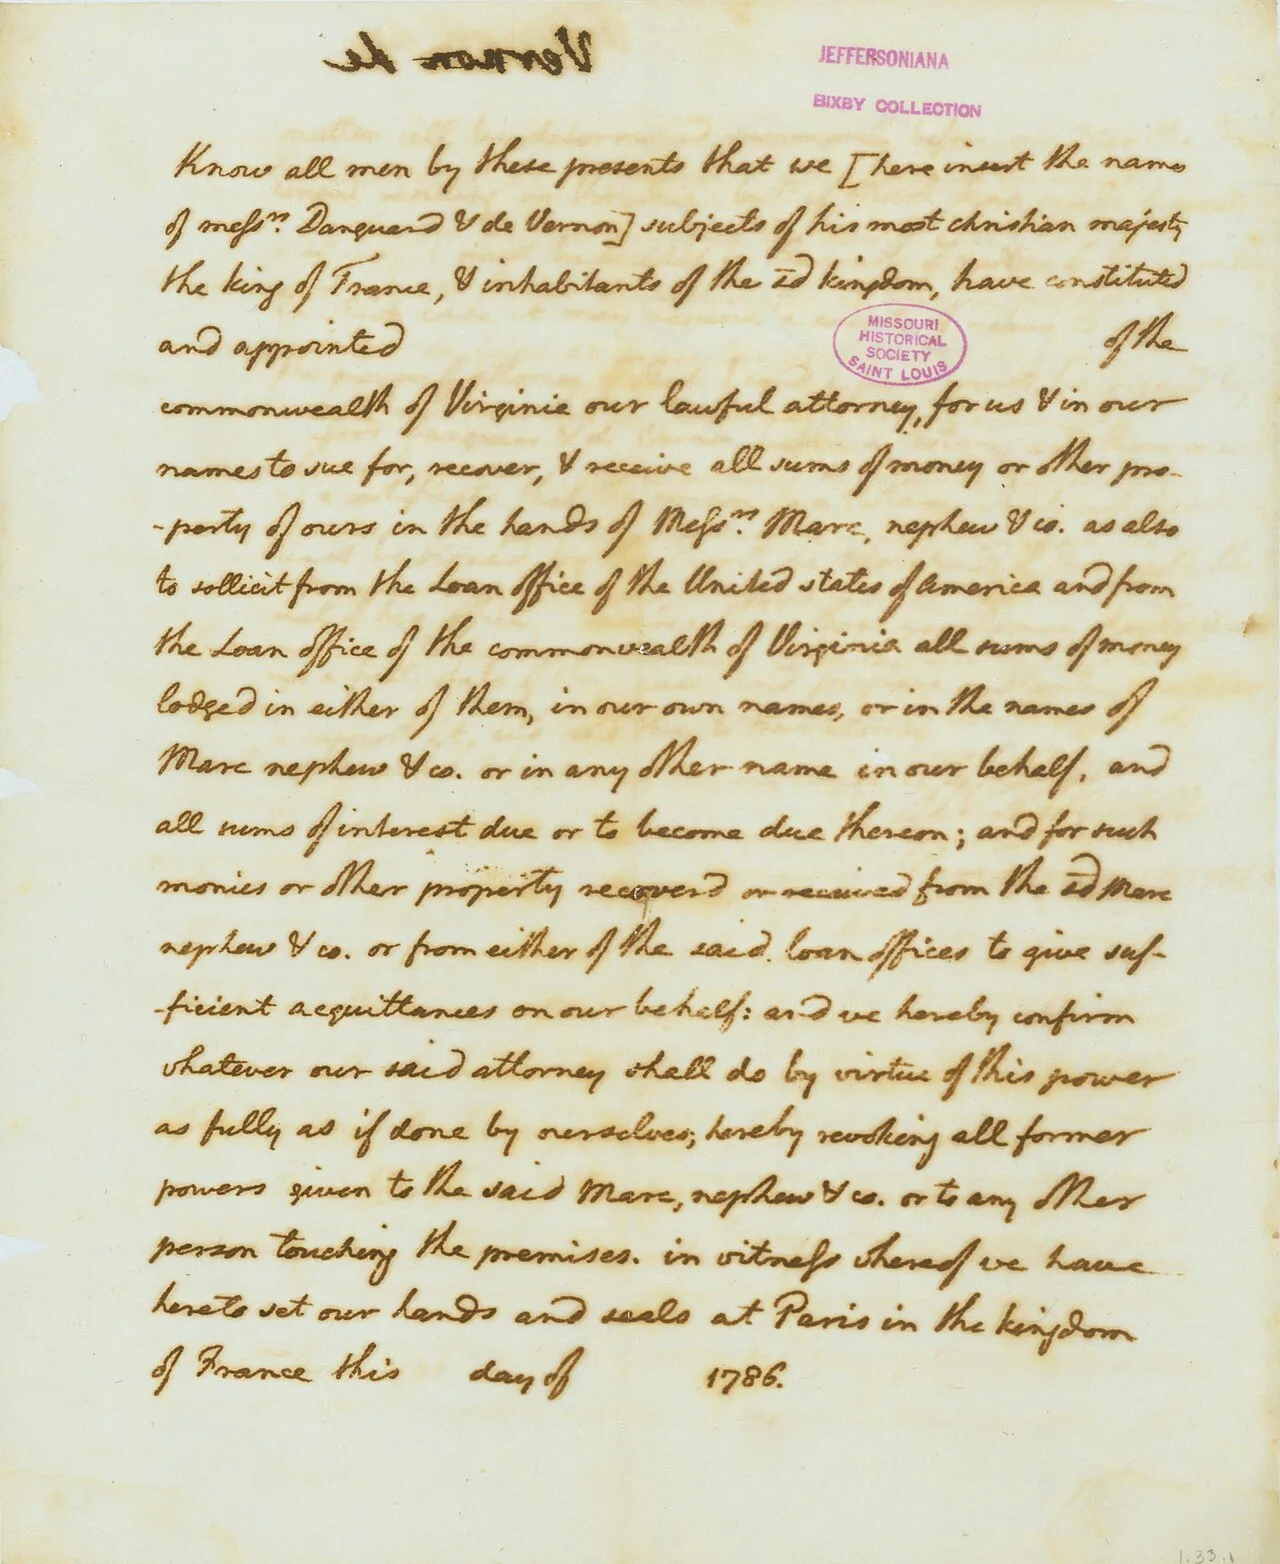 Vernon de
JEFFERSONIANA
BIXBY COLLECTION
Know all men by these presents that we [here insert the names
of messrs. Danquard & de Vernon] subjects of his most christian majesty
the king of France, & inhabitants of the sd kingdom, have constituted
and appointed of the
MISSOURI
HISTORICAL
SOCIETY
SAINT LOUIS
commonwealth of Virginia our lawful attorney, for us & in our
names to sue for, recover, & receive all sums of money or other pro-
-perty of ours in the hands of Messrs. Marc, nephew & co. as also
to sollicit from the Loan office of the United states of America and from
the Loan office of the commonwealth of Virginia all sums of money
lodged in either of them, in our own names, or in the names of
Marc nephew & co. or in any other name in our behalf, and
all sums of interest due or to become due thereon; and for such
monies or other property recoverd or received from the sd Marc
nephew & co. or from either of the said loan offices to give suf-
-ficient acquittances on our behalf: and we hereby confirm
whatever our said attorney shall do by virtue of this power
as fully as if done by ourselves; hereby revoking all former
powers given to the said Marc, nephew & co. or to any other
person touching the premises. in witness whereof we have
hereto set our hands and seals at Paris in the kingdom
of France this day of 1786.
1.33.1